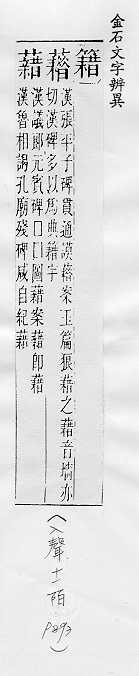 金石文字辨異
籍
漢張平子碑貫通謨藉案玉篇狼藉之藉音墻亦
切漢碑多以爲典籍字
漢議郎元賓碑口口圖藉案藉即藉
藉
漢魯相謁孔廟殘碑咸自紀藉
(入聲十一陌 P893)